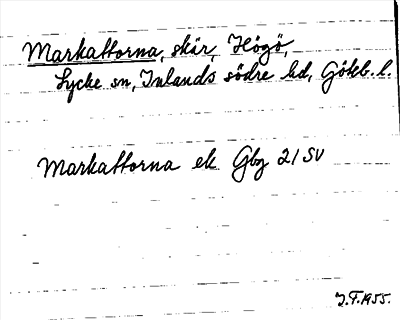 Markattorna, skär, Högö,
Lycke sn, Inlands södre hd, Göteb. l.
Markattorna ek Gbg 21 SV
J.F. 1955.